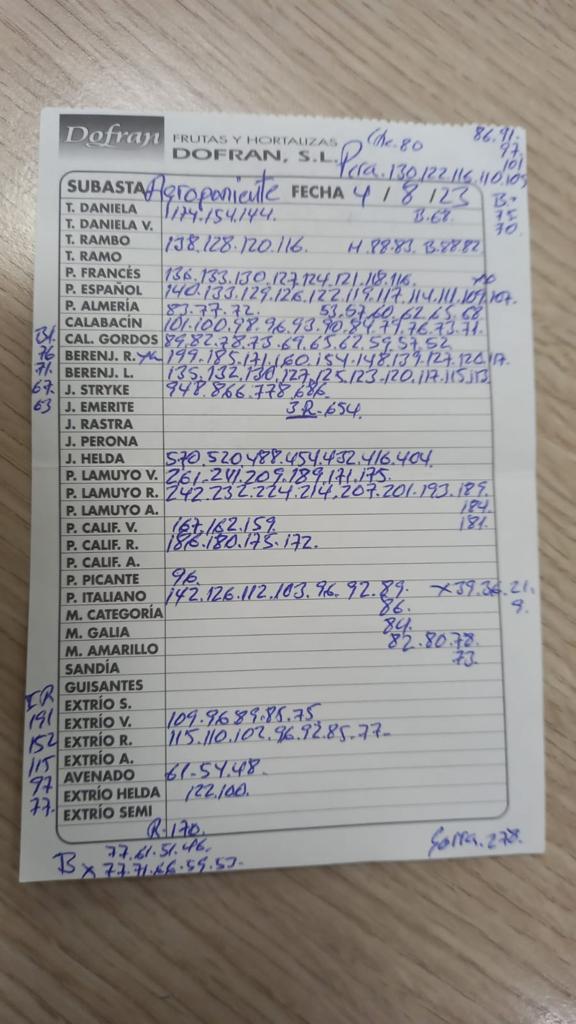 Dofran FRUTAS Y HORTALIZAS
DOFRAN, S.L.
86.91.
97
101
Pera.130.122.116.110.105
SUBASTA Agroponiente FECHA 4 / 8 / 23
B.
75
70.
T. DANIELA 174.154.144. B.68.
T. DANIELA V.
T. RAMBO 138.128.120.116. H.88.83. B.88.82.
T. RAMO
P. FRANCÉS 136.133.130.127.124.121.118.116.
P. ESPAÑOL 140.133.129.126.122.119.117.114.111.109.107.
P. ALMERÍA 83.77.72. 53.57.60.62.65.68.
CALABACÍN 101.100.98.96.93.90.84.79.76.73.71.
CAL. GORDOS 89.82.78.73.69.65.62.59.57.52
76 BERENJ. R. 199.185.171.160.154.148.139.127.120.117.
71. BERENJ. L. 135.132.130.127.125.123.120.117.115.113
67. J. STRYKE 948.866.778.686.
63 J. EMERITE 3R-654.
J. RASTRA
J. PERONA
J. HELDA 570.520.488.454.432.416.404.
P. LAMUYO V. 261.241.209.189.171.175.
P. LAMUYO R. 242.232.224.214.207.201.193.189.
P. LAMUYO A. 184.
P. CALIF. V. 167.162.159. 181.
P. CALIF. R. 186.180.175.172.
P. CALIF. A.
P. PICANTE 96.
P. ITALIANO 142.126.112.103.96.92.89. x39.36.21.
M. CATEGORÍA 86. 9.
M. GALIA 84.
M. AMARILLO 82.80.78.
SANDÍA 73.
GUISANTES
IR
EXTRÍO S.
191 EXTRÍO V. 109.96.89.85.75.
152 EXTRÍO R. 115.110.102.96.92.85.77-
115 EXTRÍO A.
97 AVENADO 61-54.48.
77. EXTRÍO HELDA 122.100.
EXTRÍO SEMI
R-170.
B 77.61.51.46.
x77.71.66.59.53.
Gorra.278.